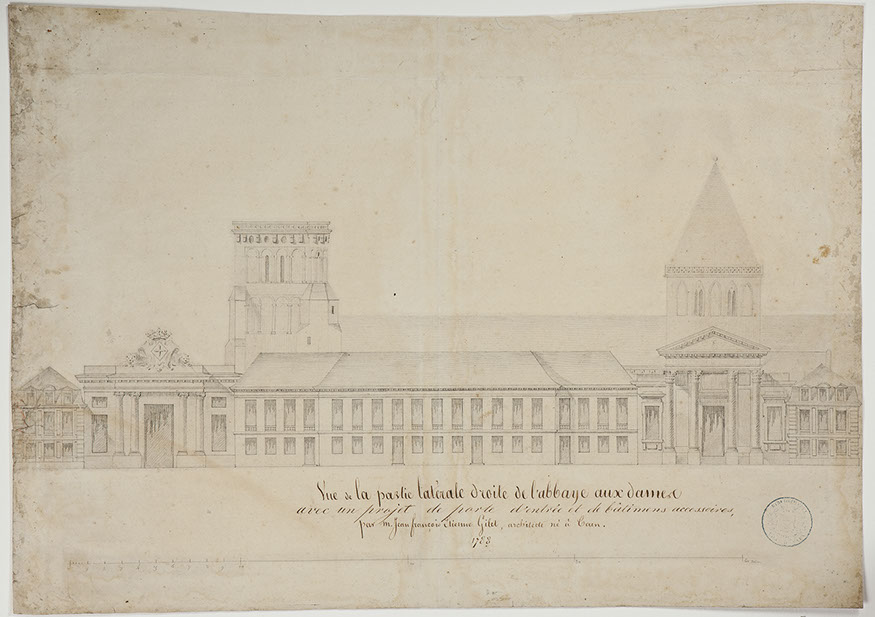 Vue de la partie latérale droite de l'abbaye aux dames
avec un projet de porte d'entrée et de bâtimens accessoires,
par m. Jean françois Etienne Gilet, architecte né à Caen.
1788.